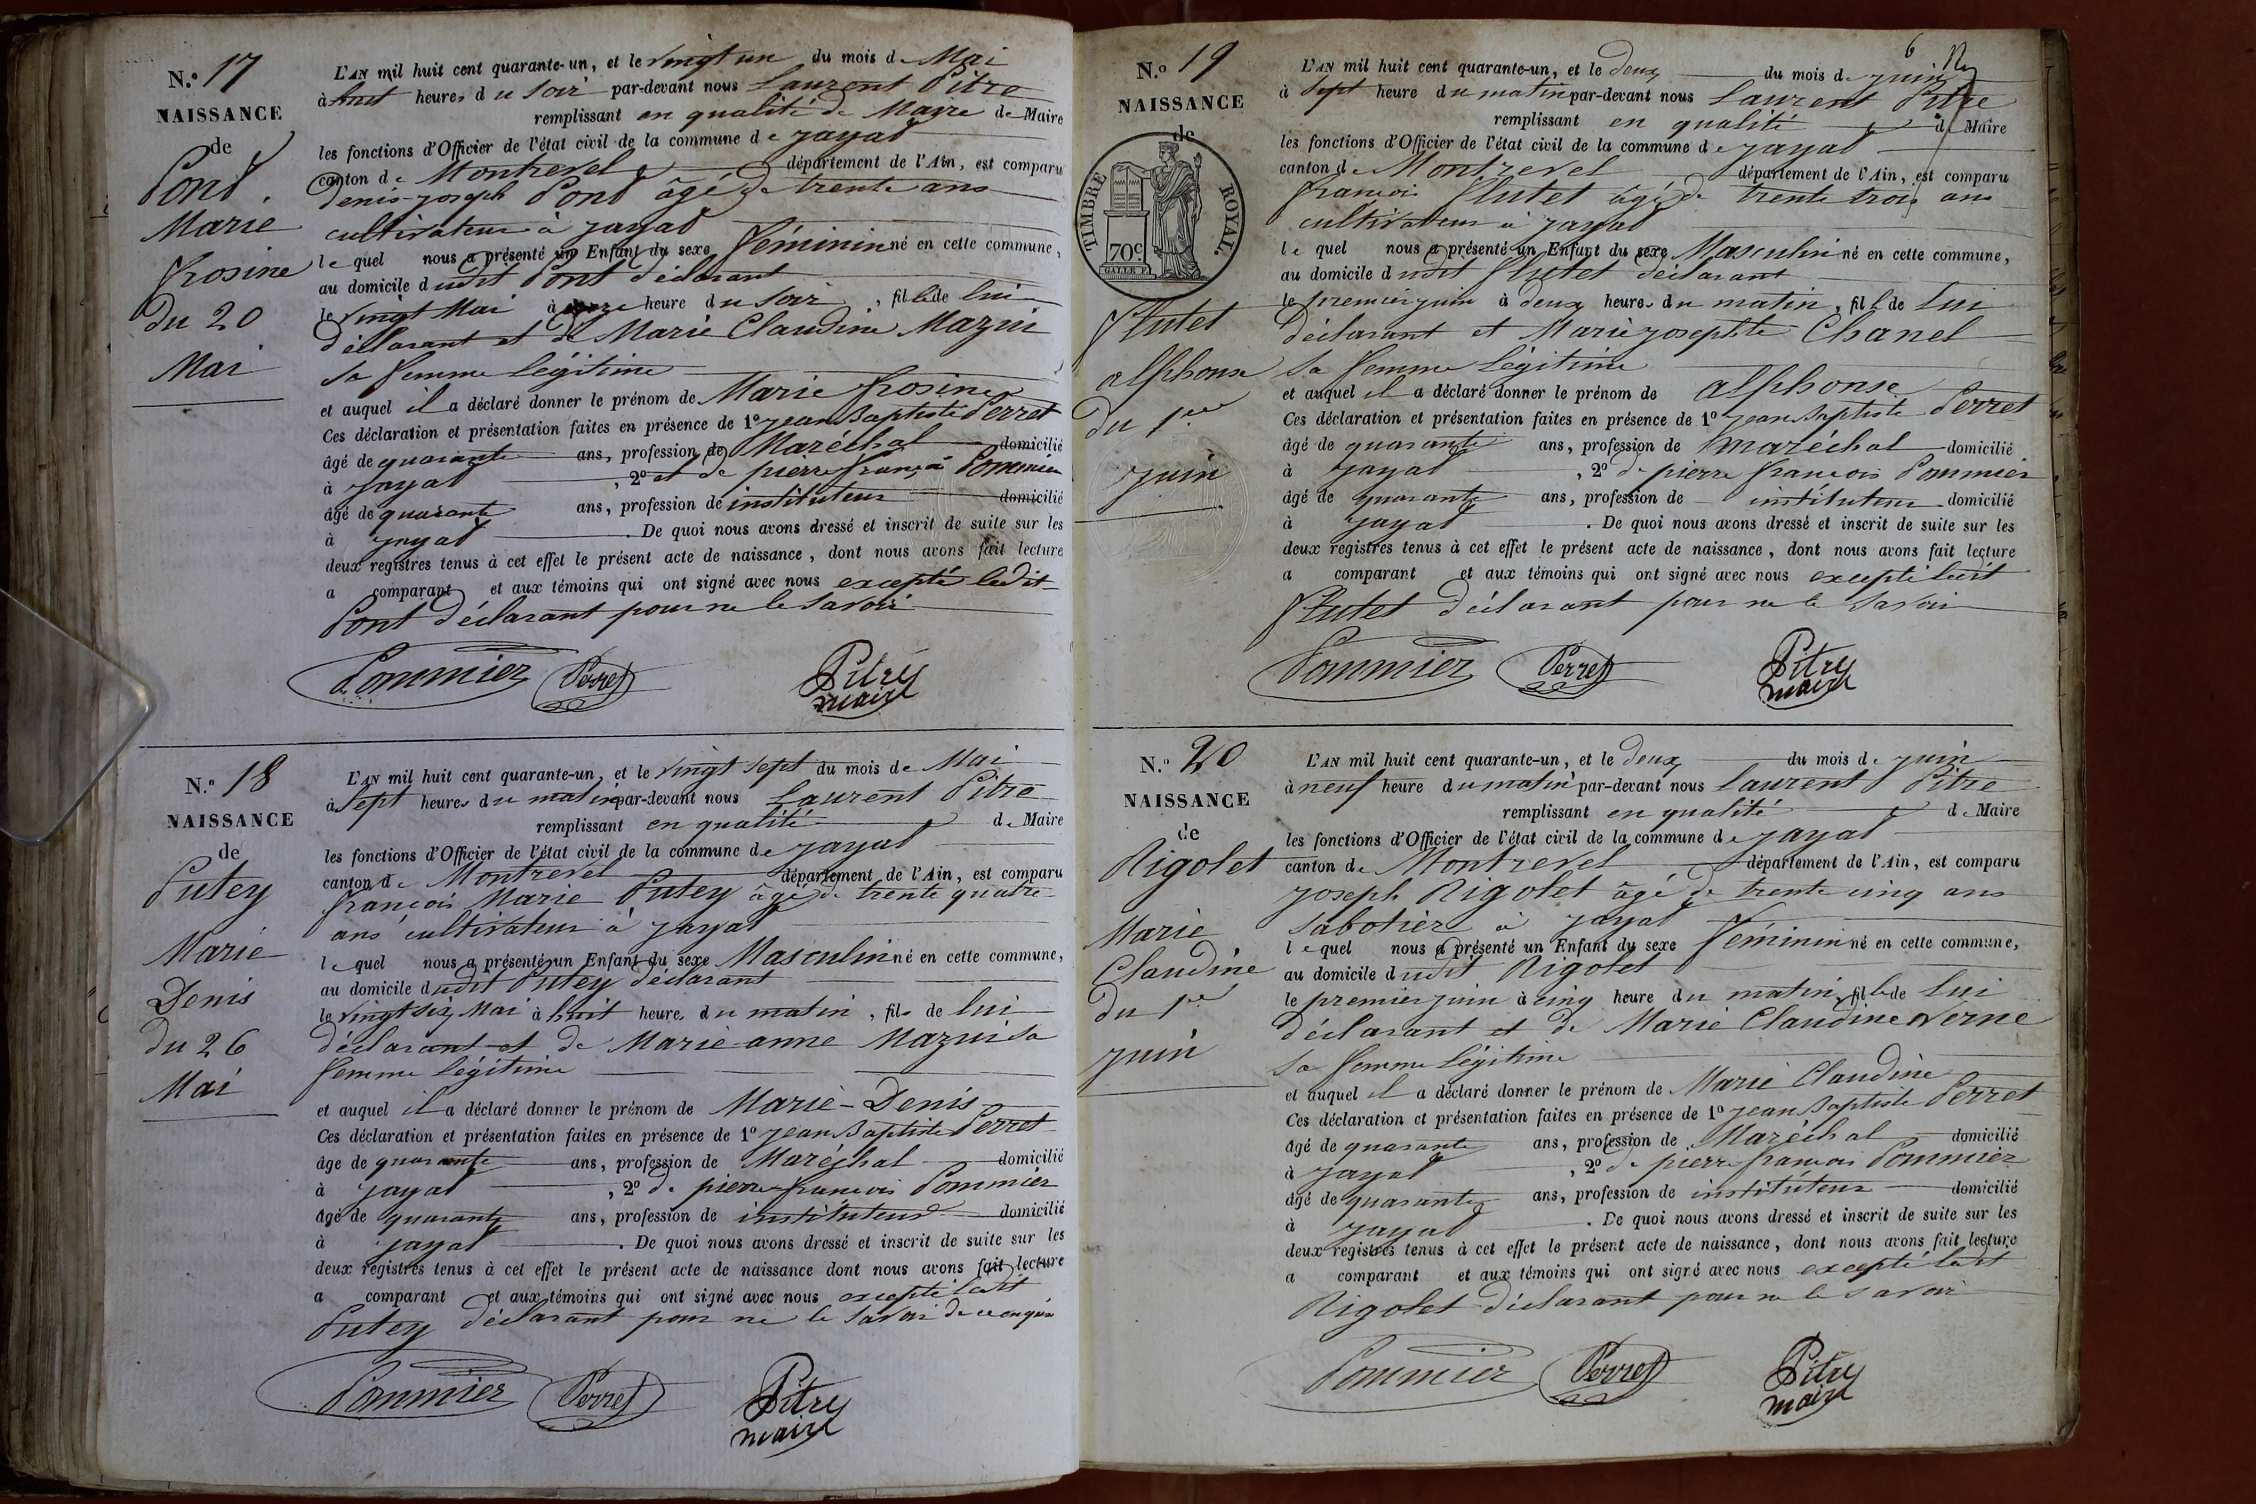 N.º 17
NAISSANCE
de
Pont
Marie
frosine
du 20
Mai
L'AN mil huit cent quarante-un, et le vingt un du mois de Mai
à huit heures du soir par-devant nous Laurent Pitre
remplissant en qualité de Mayre de Maire
les fonctions d'Officier de l'état civil de la commune de jayat
canton de Montrevel département de l'Ain, est comparu
denis-joseph Pont âgé de trente ans
cultivateur à jayat
lequel nous a présenté un Enfant du sexe féminin né en cette commune,
au domicile dudit Pont déclarant
le vingt Mai à onze heure du soir, fille de lui
déclarant et de Marie Claudine Mazuir
sa femme légitime
et auquel il a déclaré donner le prénom de Marie frosine
Ces déclaration et présentation faites en présence de 1º jean Baptiste Perret
âgé de quarante ans, profession de Maréchal domicilié
à jayat, 2º et de pierre françois Pommier
âgé de quarante ans, profession de instituteur domicilié
à jayat. De quoi nous avons dressé et inscrit de suite sur les
deux registres tenus à cet effet le présent acte de naissance, dont nous avons fait lecture
a comparant et aux témoins qui ont signé avec nous excepté ledit
Pont déclarant pour ne le savoir
Pommier Perret Pitre
maire
N.º 18
NAISSANCE
de
Putey
Marie
Denis
du 26
Mai
L'AN mil huit cent quarante-un, et le vingt sept du mois de Mai
à sept heures du matin par-devant nous Laurent Pitre
remplissant en qualité de Maire
les fonctions d'Officier de l'état civil de la commune de jayat
canton de Montrevel département de l'Ain, est comparu
françois Marie Putey âgé de trente quatre
ans cultivateur à jayat
lequel nous a présenté un Enfant du sexe Masculin né en cette commune,
au domicile dudit Putey déclarant
le vingt six Mai à huit heures du matin, fils de lui
déclarant et de Marie-anne Mazuir sa
femme légitime
et auquel il a déclaré donner le prénom de Marie-Denis
Ces déclaration et présentation faites en présence de 1º jean Baptiste Perret
âge de quarante ans, profession de Maréchal domicilié
à jayat, 2º de pierre françois Pommier
âgé de quarante ans, profession de instituteur domicilié
à jayat. De quoi nous avons dressé et inscrit de suite sur les
deux registres tenus à cet effet le présent acte de naissance dont nous avons fait lecture
a comparant et aux témoins qui ont signé avec nous excepté ledit
Putey déclarant pour ne le savoir de ce enquis
Pommier Perret Pitre
maire
6
N.º 19
NAISSANCE
de
TIMBRE ROYAL.
70c
flutet
alphonse
du 1er
juin
L'AN mil huit cent quarante-un, et le deux du mois de juin
à sept heure du matin par-devant nous Laurent Pitre
remplissant en qualité de Maire
les fonctions d'Officier de l'état civil de la commune de jayat
canton de Montrevel département de l'Ain, est comparu
françois flutet âgé de trente trois ans
cultivateur à jayat
lequel nous a présenté un Enfant du sexe Masculin né en cette commune,
au domicile dudit flutet déclarant
le premier juin à deux heures du matin, fils de lui
déclarant et Marie josephte Chanel
sa femme légitime
et auquel il a déclaré donner le prénom de alphonse
Ces déclaration et présentation faites en présence de 1º jean Baptiste Perret
âgé de quarante ans, profession de maréchal domicilié
à jayat, 2º de pierre françois Pommier
âgé de quarante ans, profession de instituteur domicilié
à jayat. De quoi nous avons dressé et inscrit de suite sur les
deux registres tenus à cet effet le présent acte de naissance, dont nous avons fait lecture
a comparant et aux témoins qui ont signé avec nous excepté ledit
flutet déclarant pour ne le savoir
Pommier Perret Pitre
maire
N.º 20
NAISSANCE
de
Rigolet
Marie
Claudine
du 1er
juin
L'AN mil huit cent quarante-un, et le deux du mois de juin
à neuf heure du matin par-devant nous Laurent Pitre
remplissant en qualité de Maire
les fonctions d'Officier de l'état civil de la commune de jayat
canton de Montrevel département de l'Ain, est comparu
joseph Rigolet âgé de trente cinq ans
sabotier à jayat
lequel nous a présenté un Enfant du sexe féminin né en cette commune,
au domicile dudit Rigolet
le premier juin à cinq heure du matin, fille de lui
déclarant et de Marie Claudine Verne
sa femme légitime
et auquel il a déclaré donner le prénom de Marie Claudine
Ces déclaration et présentation faites en présence de 1º jean Baptiste Perret
âgé de quarante ans, profession de Maréchal domicilié
à jayat, 2º de pierre françois Pommier
âgé de quarante ans, profession de instituteur domicilié
à jayat. De quoi nous avons dressé et inscrit de suite sur les
deux registres tenus à cet effet le présent acte de naissance, dont nous avons fait lecture
a comparant et aux témoins qui ont signé avec nous excepté ledit
Rigolet déclarant pour ne le savoir
Pommier Perret Pitre
maire